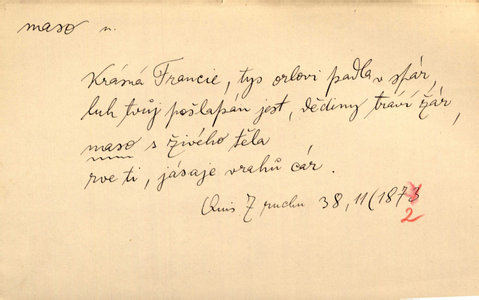 maso n.
Krásná Francie, tys orlovi padla v spár,
luh tvůj pošlapán jest, dědiny tráví žár,
maso s živého těla
rve ti, jásaje vrahů čár.
Quis Z ruchu 38, 11 (187
2